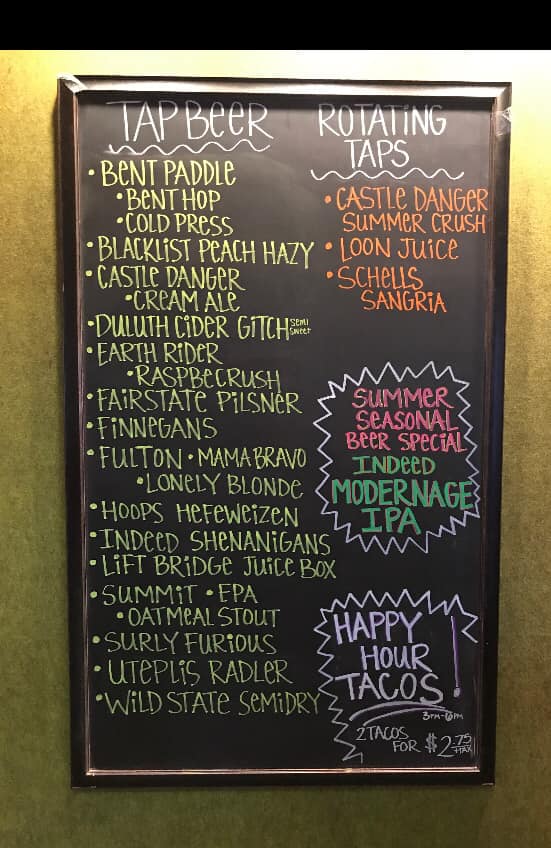 TAP BEER
• BENT PADDLE
• BENT HOP
• COLD PRESS
• BLACKLIST PEACH HAZY
• CASTLE DANGER
• CREAM ALE
• DULUTH CIDER GITCH SEMI SWEET
• EARTH RIDER
• RASPBECRUSH
• FAIRSTATE PILSNER
• FINNEGANS
• FULTON • MAMA BRAVO
• LONELY BLONDE
• HOOPS HEFEWEIZEN
• INDEED SHENANIGANS
• LIFT BRIDGE JUICE BOX
• SUMMIT • EPA
• OATMEAL STOUT
• SURLY FURIOUS
• UTEPLIS RADLER
• WILD STATE SEMIDRY
ROTATING
TAPS
• CASTLE DANGER
SUMMER CRUSH
• LOON JUICE
• SCHELLS
SANGRIA
SUMMER
SEASONAL
BEER SPECIAL
INDEED
MODERNAGE
IPA
HAPPY
HOUR
TACOS!
3PM-6PM
2 TACOS
FOR $2.75
+TAX